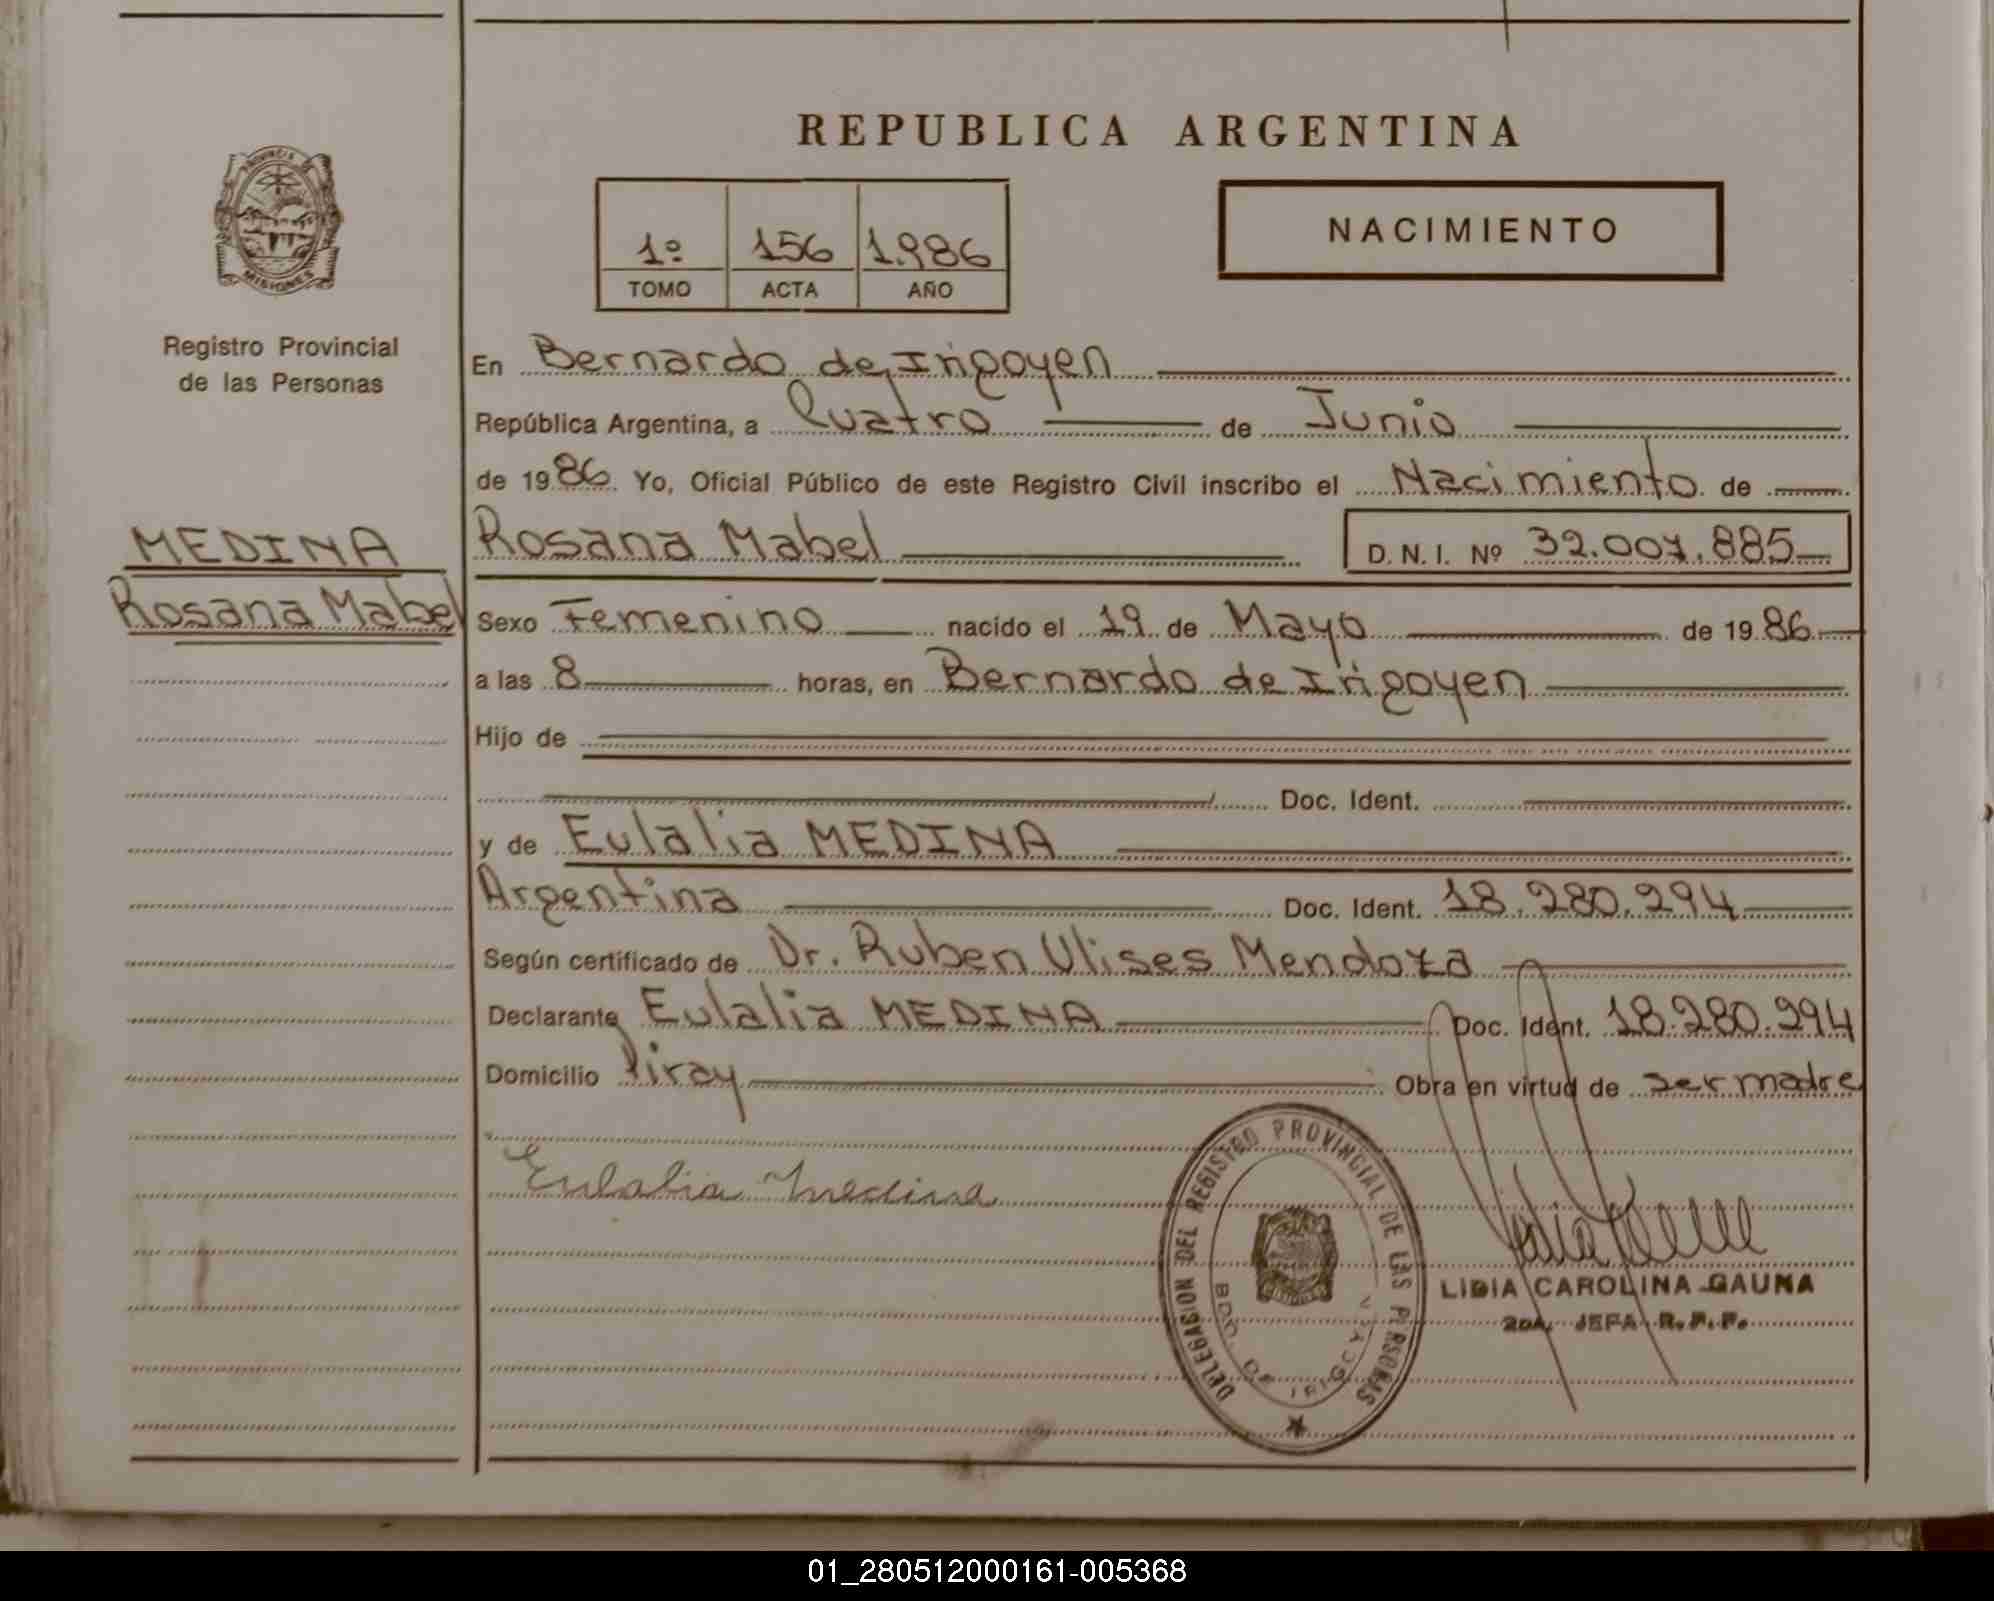 REPUBLICA ARGENTINA
NACIMIENTO
1º 156 1.986
TOMO ACTA AÑO
PROVINCIA
MISIONES
Registro Provincial
de las Personas
MEDINA
Rosana Mabel
En Bernardo de Irigoyen
República Argentina, a Cuatro de Junio
de 1986. Yo, Oficial Público de este Registro Civil inscribo el Nacimiento de
Rosana Mabel D. N. I. Nº 32.007.885
Sexo Femenino nacido el 19 de Mayo de 1986
a las 8 horas, en Bernardo de Irigoyen
Hijo de
Doc. Ident.
y de Eulalia MEDINA
Argentina Doc. Ident. 18.280.294
Según certificado de Dr. Ruben Ulises Mendoza
Declarante Eulalia MEDINA Doc. Ident. 18.280.294
Domicilio Piray Obra en virtud de ser madre
Eulalia Medina
DELEGACION DEL REGISTRO PROVINCIAL DE LAS PERSONAS
BDO. DE IRIGOYEN
LIDIA CAROLINA GAUNA
2DA. JEFA R. P. P.
01_280512000161-005368